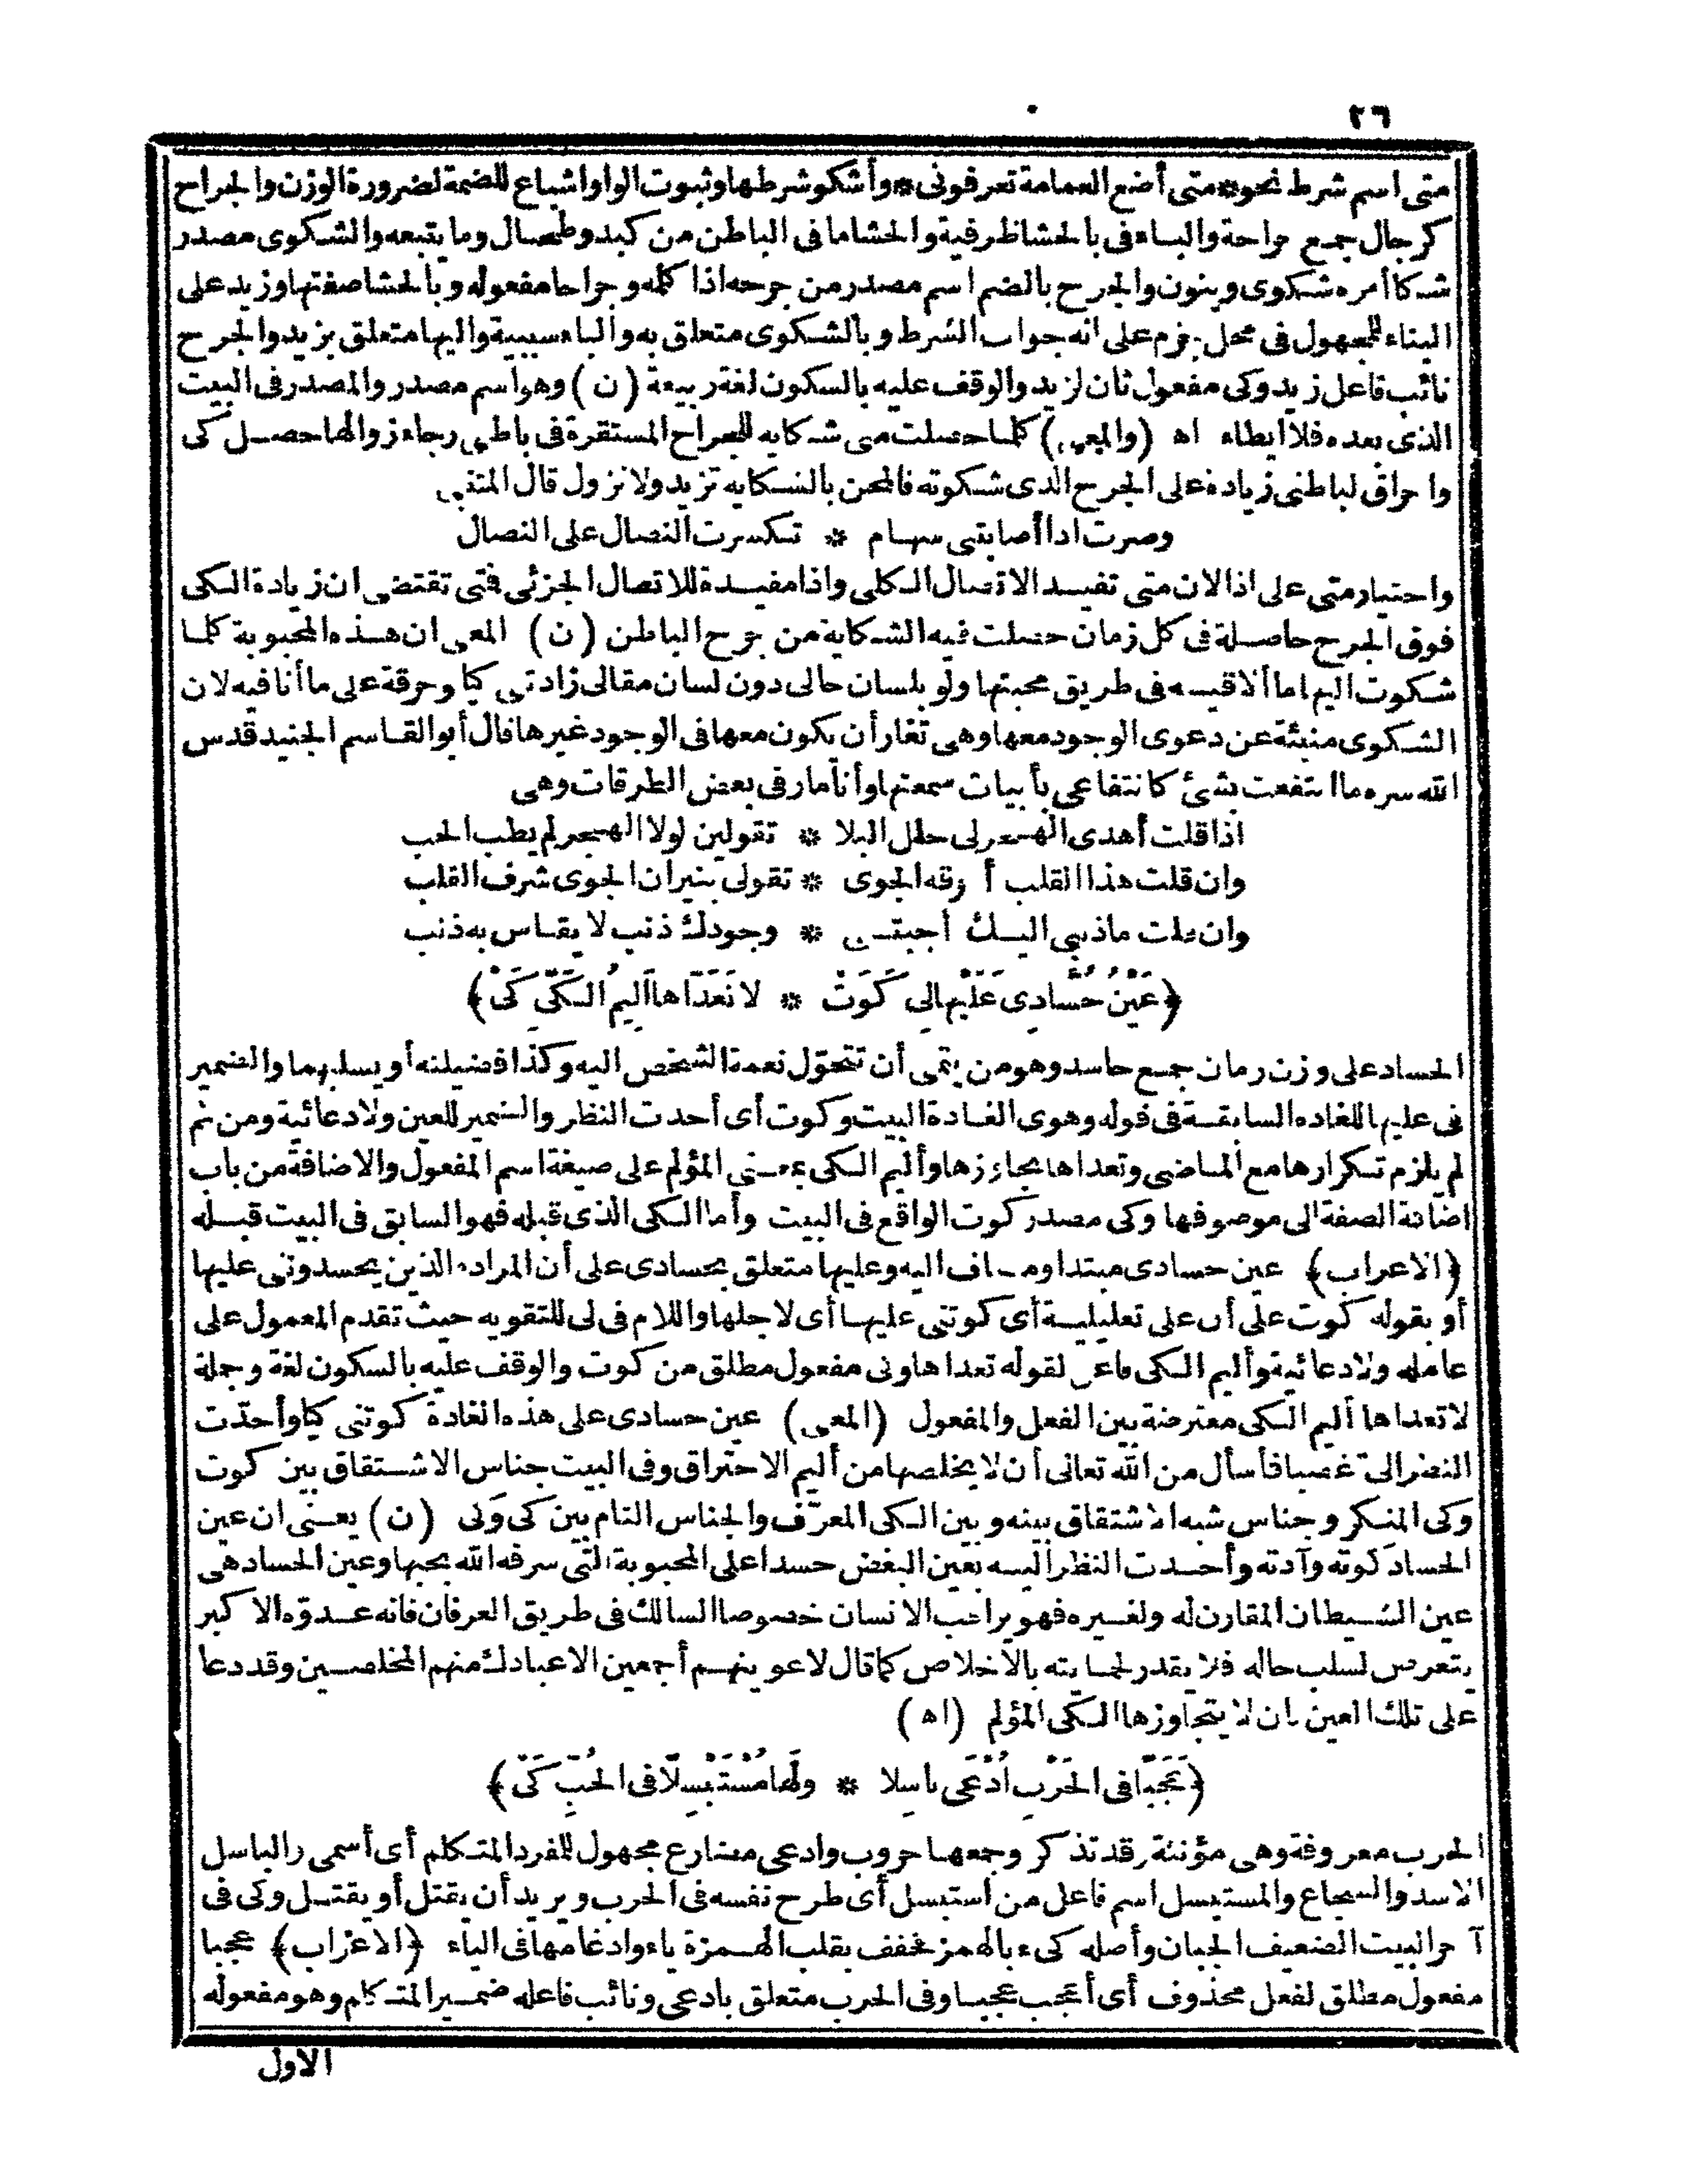 ٢٦
متى اسم شرط نحو * متى أضع العمامة تعرفونى * وأشكو شرطها وثبوت الواو اشباع للضمة لضرورة الوزن والجراح
كرجال جمع جراحة والباء فى بالحشا ظرفية والحشا ما فى الباطن من كبد وطحال وما يتبعه والشكوى مصدر
شكا أمره شكوى وينون والجرح بالضم اسم مصدر من جرحه اذا كلمه وجراحا مفعوله وبالحشا صفتها وزيد على
البناء للمجهول فى محل جزم على انه جواب الشرط وبالشكوى متعلق به والباء سببية واليها متعلق بزيد والجرح
نائب فاعل زيد وكى مفعول ثان لزيد والوقف عليه بالسكون لغة ربيعة (ن) وهو اسم مصدر والمصدر فى البيت
الذى بعده فلا ايطاء اه (والمعنى) كلما حصلت منى شكاية للجراح المستقرة فى باطنى رجاء زوالها حصل كى
واحراق لباطنى زيادة على الجرح الذى شكوته فالمحن بالشكاية تزيد ولا تزول قال المتنبى
وصرت اذا أصابتنى سهام * تكسرت النصال على النصال
واختيار متى على اذا لان متى تفيد الاتصال الكلى واذا مفيدة للاتصال الجزئى فمتى تقتضى ان زيادة الكى
فوق الجرح حاصلة فى كل زمان حصلت فيه الشكاية من جرح الباطن (ن) المعنى ان هذه المحبوبة كلما
شكوت اليها ما ألاقيه فى طريق محبتها ولو بلسان حالى دون لسان مقالى زادتنى كيا وحرقة على ما أنا فيه لان
الشكوى منبئة عن دعوى الوجود معها وهى تغار أن يكون معها فى الوجود غيرها قال أبو القاسم الجنيد قدس
الله سره ما انتفعت بشئ كانتفاعى بأبيات سمعتها وأنا مار فى بعض الطرقات وهى
اذا قلت أهدى الهجر لى حلل البلا * تقولين لولا الهجر لم يطب الحب
وان قلت هذا القلب أحرقه الجوى * تقولى بنيران الجوى شرف القلب
وان قلت ما ذنبى اليك أجبتنى * وجودك ذنب لا يقاس به ذنب
﴿عَيْنُ حُسَّادِى عَلَيْهَا لِى كَوَتْ * لَا تَعَدَّاهَا أَلِيمُ الْكَىِّ كَىْ﴾
الحساد على وزن رمان جمع حاسد وهو من يتمنى أن تتحوّل نعمة الشخص اليه وكذا فضيلته أو يسلبهما والضمير
فى عليها للغادة السابقة فى قوله وهوى الغادة البيت وكوت أى أحدت النظر والضمير للعين ولا دعائية ومن ثم
لم يلزم تكرارها مع الماضى وتعداها بجاوزها وأليم الكى بمعنى المؤلم على صيغة اسم المفعول والاضافة من باب
اضافة الصفة الى موصوفها وكى مصدر كوت الواقع فى البيت وأما الكى الذى قبله فهو السابق فى البيت قبله
﴿الاعراب﴾ عين حسادى مبتدا ومضاف اليه وعليها متعلق بحسادى على أن المراد الذين يحسدوننى عليها
أو بقوله كوت على أن على تعليلية أى كوتنى عليها أى لاجلها واللام فى لى للتقوية حيث تقدم المعمول على
عامله ولا دعائية وأليم الكى فاعل لقوله تعداها وكى مفعول مطلق من كوت والوقف عليه بالسكون لغة وجملة
لا تعداها أليم الكى معترضة بين الفعل والمفعول (المعنى) عين حسادى على هذه الغادة كوتنى كيا وأحدّت
النظر الىّ غضبا فأسأل من الله تعالى أن لا يخلصها من أليم الاحتراق وفى البيت جناس الاشتقاق بين كوت
وكى المنكر وجناس شبه الاشتقاق بينه وبين الكى المعرّف والجناس التام بين كى وكى (ن) يعنى ان عين
الحساد كوته وآذته وأحدت النظر اليه بعين البغض حسدا على المحبوبة التى شرفه الله بحبها وعين الحساد هى
عين الشيطان المقارن له ولغيره فهو يراقب الانسان خصوصا السالك فى طريق العرفان فانه عدوّه الاكبر
يتعرض لسلب حاله فلا يقدر لحمايته بالاخلاص كما قال لاغوينهم أجمعين الا عبادك منهم المخلصين وقد دعا
على تلك العين بان لا يتجاوزها الكى المؤلم (اه)
﴿عَجَبًا فِى الْحَرْبِ أُدْعَى بَاسِلًا * وَلَهَا مُسْتَبْسِلًا فِى الْحُبِّ كَىّ﴾
الحرب معروفة وهى مؤنثة وقد تذكر وجمعها حروب وادعى مضارع مجهول للمفرد المتكلم أى أسمى والباسل
الاسد والشجاع والمستبسل اسم فاعل من استبسل أى طرح نفسه فى الحرب ويريد أن يقتل أو يقتل وكى فى
آخر البيت الضعيف الجبان وأصله كىء بالهمز مخفف بقلب الهمزة ياء وادغامها فى الياء ﴿الاعراب﴾ عجبا
مفعول مطلق لفعل محذوف أى أعجب عجبا وفى الحرب متعلق بادعى ونائب فاعله ضمير المتكلم وهو مفعوله
الاول